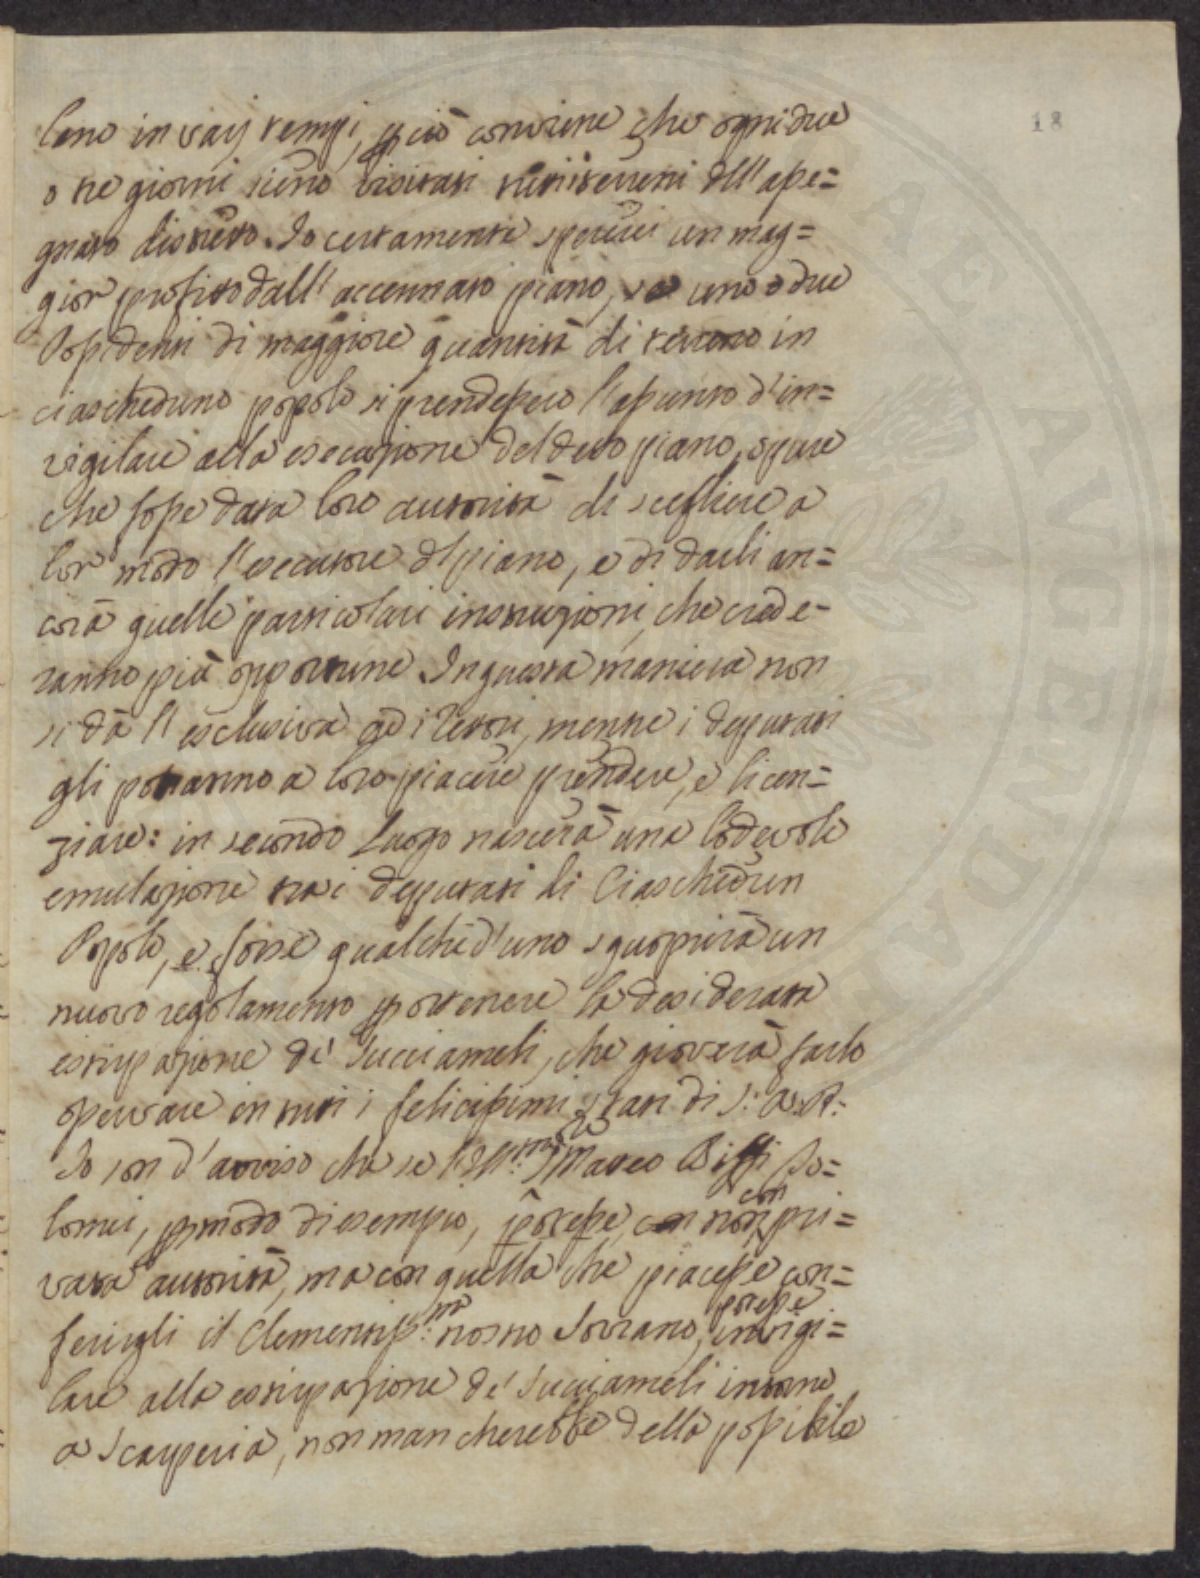 18
lano in varj tempi, p ciò conviene che ogni due
o tre giorni sieno visitati tutti i terreni dll'asse=
gnato distretto. Io certamente spererei un mag=
gior profitto dall'accennato piano, se uno o due
Possidenti di maggiore quantità di terreno in
ciascheduno popolo si prendessero l'assunto d'in=
vigilare alla esecuzione del detto piano, opure
che fosse data loro autorità di scegliere a
lor modo l'esecutore dl piano, e di darli an=
cora quelle particolari instruzioni, che crede=
ranno più opportune. In questa maniera non
si dà l'esclusiva ad i Periti, mentre i deputati
gli potranno a loro piacere prendere, e licen=
ziare: in secondo Luogo nascerà una lodevole
emulazione tra i deputati di Ciaschedun
Popolo, e forse qualched'uno scuoprirà un
nuovo regolamento p ottenere la desiderata
estirpazione de' Succiameli, che gioverà farlo
osservare in tutti i felicissimi Stati di S: A: R:
Io son d'avviso che se l'Ill:mo Sre Marco Biffi To=
lomei, p modo di esempio, potesse, con non pri=
con
vata autorità, ma con quella che piacesse con=
ferirgli il Clementiss:mo nostro Sovrano, invigi=
potesse
lare alla estirpazione de' Succiameli intorno
a Scarperia, non mancherebbe della possibile